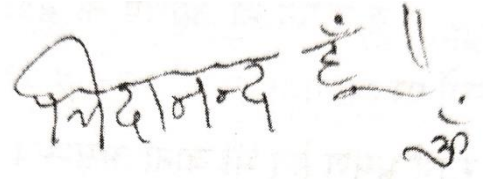 चिदानन्द हूँ॥
ॐ